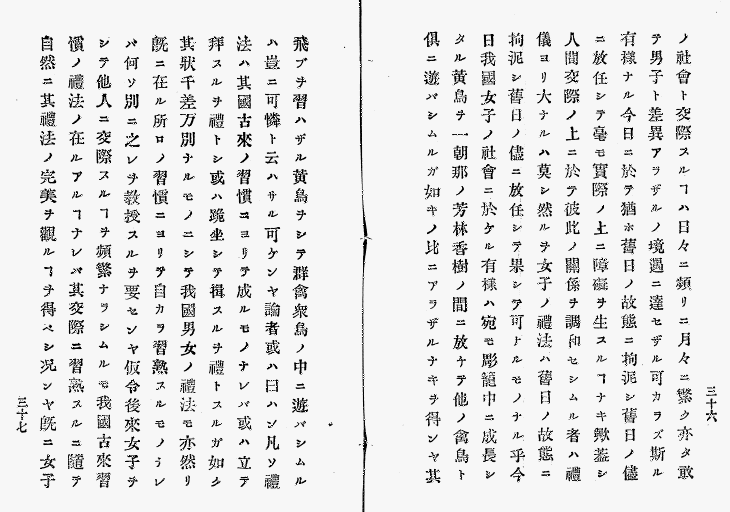 ノ社會ト交際スルヿハ日々ニ頻リニ月々ニ繁ク亦タ敢
テ男子ト差異アラザルノ境遇ニ達セザル可カラズ斯ル
有樣ナル今日ニ於テ猶ホ舊日ノ故態ニ拘泥シ舊日ノ儘
ニ放任シテ毫モ實際ノ上ニ障礙ヲ生スルヿナキ歟蓋シ
人間交際ノ上ニ於テ彼此ノ關係ヲ調和セシムル者ハ禮
儀ヨリ大ナルハ莫シ然ルヲ女子ノ禮法ハ舊日ノ故態ニ
拘泥シ舊日ノ儘ニ放任シテ果シテ可トルモノナル乎今
日我國女子ノ社會ニ於ケル有樣ハ宛モ彫籠中ニ成長シ
タル黄鳥ヲ一朝那ノ芳林香樹ノ間ニ放ケテ他ノ禽鳥ト
俱ニ遊バシムルガ如キノ比ニアラザルナキヲ得ンヤ其
三十六
飛ブヲ習ハザル黄鳥ヲシテ群禽衆鳥ノ中ニ遊バシムル
ハ豈ニ可憐ト云ハサル可ケンヤ論者或ハ曰ハン凡ソ禮
法ハ其國古來ノ習慣ニヨリテ成ルモノナレバ或ハ立テ
拜スルヲ禮トシ或ハ跪坐シテ揖スルヲ禮トスルガ如ク
其狀千差万別ナルモノニシテ我國男女ノ禮法モ亦然リ
旣ニ在ル所ロノ習慣ニヨリテ自カラ習熟スルモノナレ
バ何ソ別ニ之レヲ教授スルヲ要センヤ仮令後來女子ヲ
シテ他人ニ交際スルヿヲ頻繁ナラシムルモ我國古來習
慣ノ禮法ノ在ルアルヿナレバ其交際ニ習熟スルニ隨テ
自然ニ其禮法ノ完美ヲ觀ルヿヲ得ベシ况ンヤ旣ニ女子
三十七